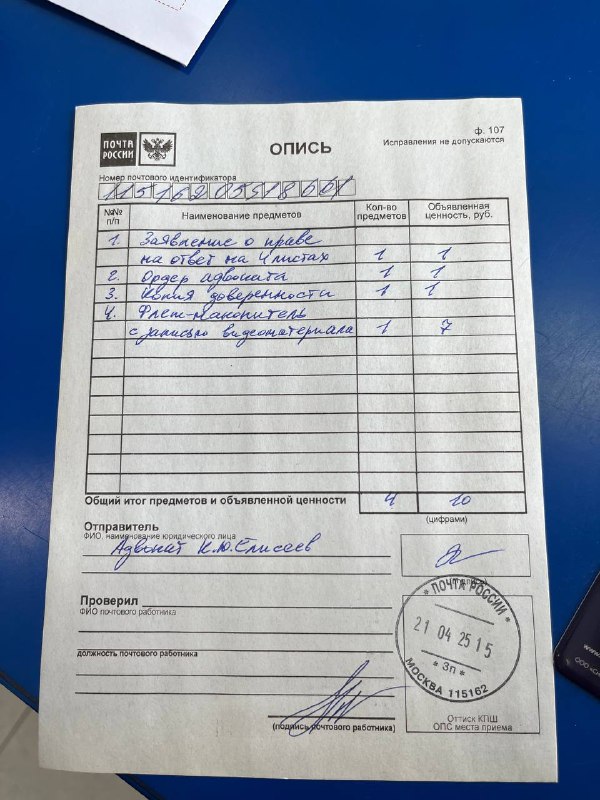 ПОЧТА РОССИИ
ОПИСЬ
ф. 107
Исправления не допускаются
Номер почтового идентификатора
№№ п/п
Наименование предметов
Кол-во предметов
Объявленная ценность, руб.
1. Заявление о праве
на ответ на 4 листах 1 1
2. Ордер адвоката 1 1
3. Копия доверенности 1 1
4. Флеш-накопитель
с записью видеоматериала 1 7
Общий итог предметов и объявленной ценности 4 10
(цифрами)
Отправитель
ФИО, наименование юридического лица
Адвокат Н.Ю.Елисеев
Проверил
ФИО почтового работника
должность почтового работника
(подпись почтового работника)
* ПОЧТА РОССИИ *
21 04 25 15
* 3п *
МОСКВА 115162
Оттиск КПШ
ОПС места приема